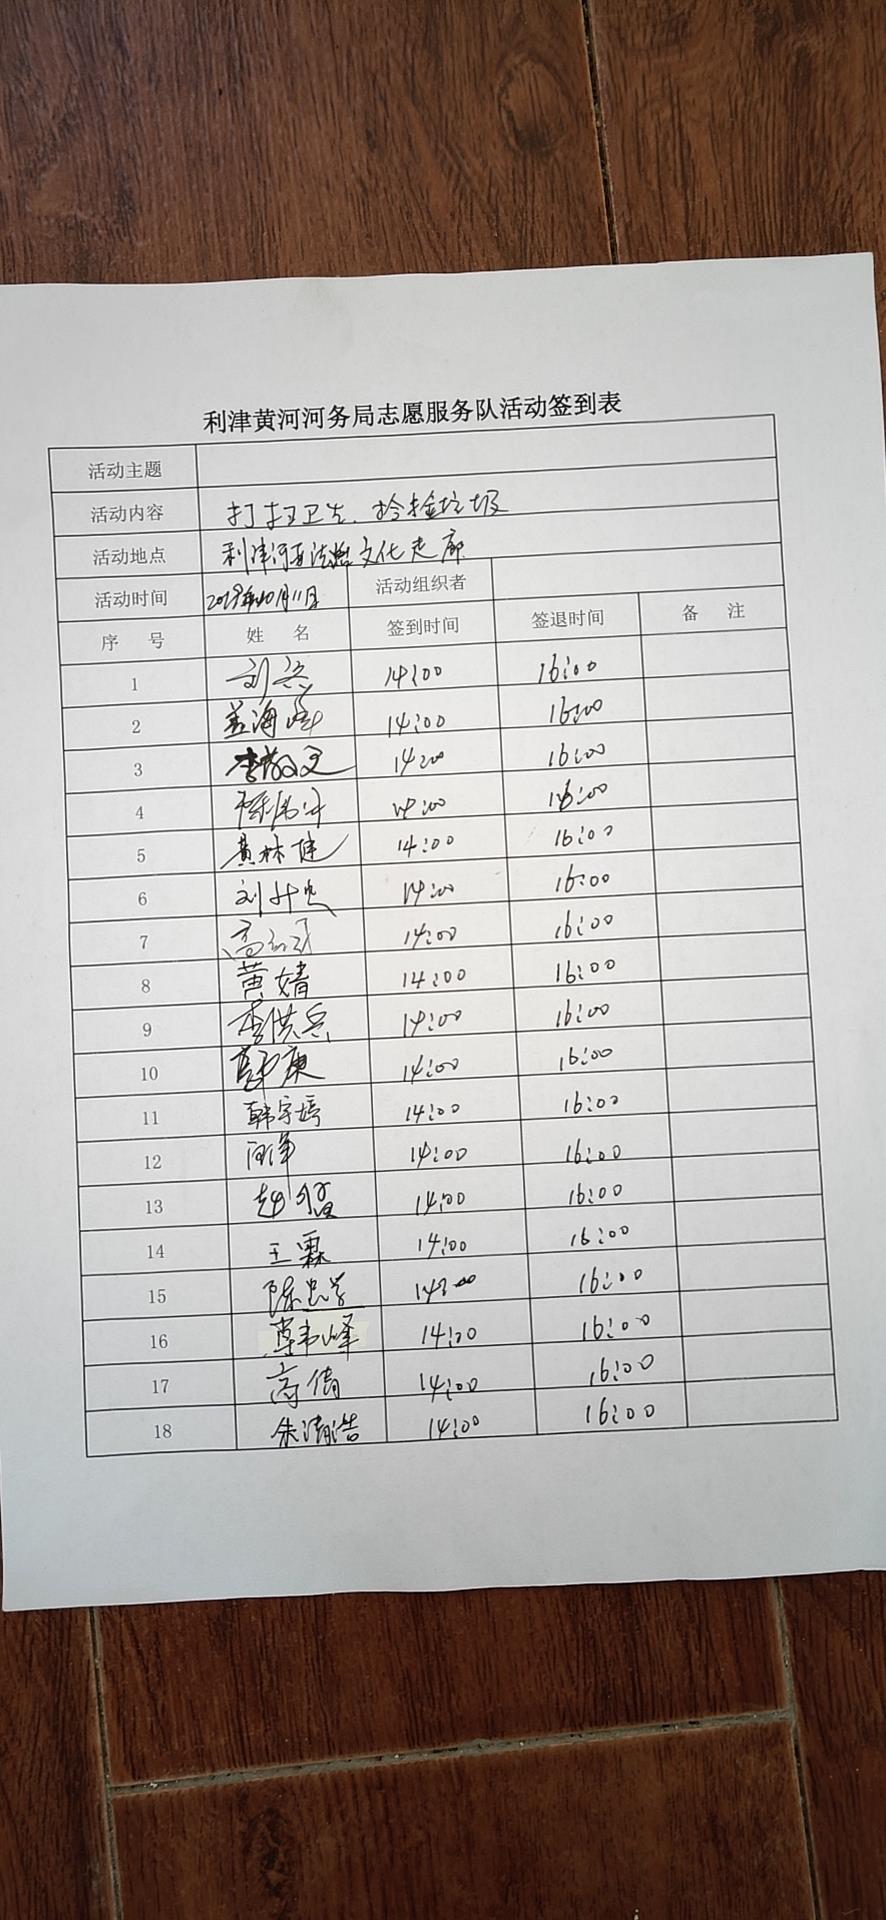 利津黄河河务局志愿服务队活动签到表
活动主题
活动内容 打扫卫生、拾捡垃圾
活动地点 利津河务法治文化走廊
活动时间 2019年10月11日 活动组织者
序 号 姓 名 签到时间 签退时间 备 注
1 14:00 16:00
2 盖海 14:00 16:00
3 李 14:00 16:00
4 14:00 16:00
5 黄林健 14:00 16:00
6 刘 14:00 16:00
7 高 14:00 16:00
8 黄婧 14:00 16:00
9 李洪兵 14:00 16:00
10 康 14:00 16:00
11 韩宇婷 14:00 16:00
12 14:00 16:00
13 赵 14:00 16:00
14 王霖 14:00 16:00
15 陈忠 14:00 16:00
16 峰 14:00 16:00
17 高倩 14:00 16:00
18 朱清浩 14:00 16:00